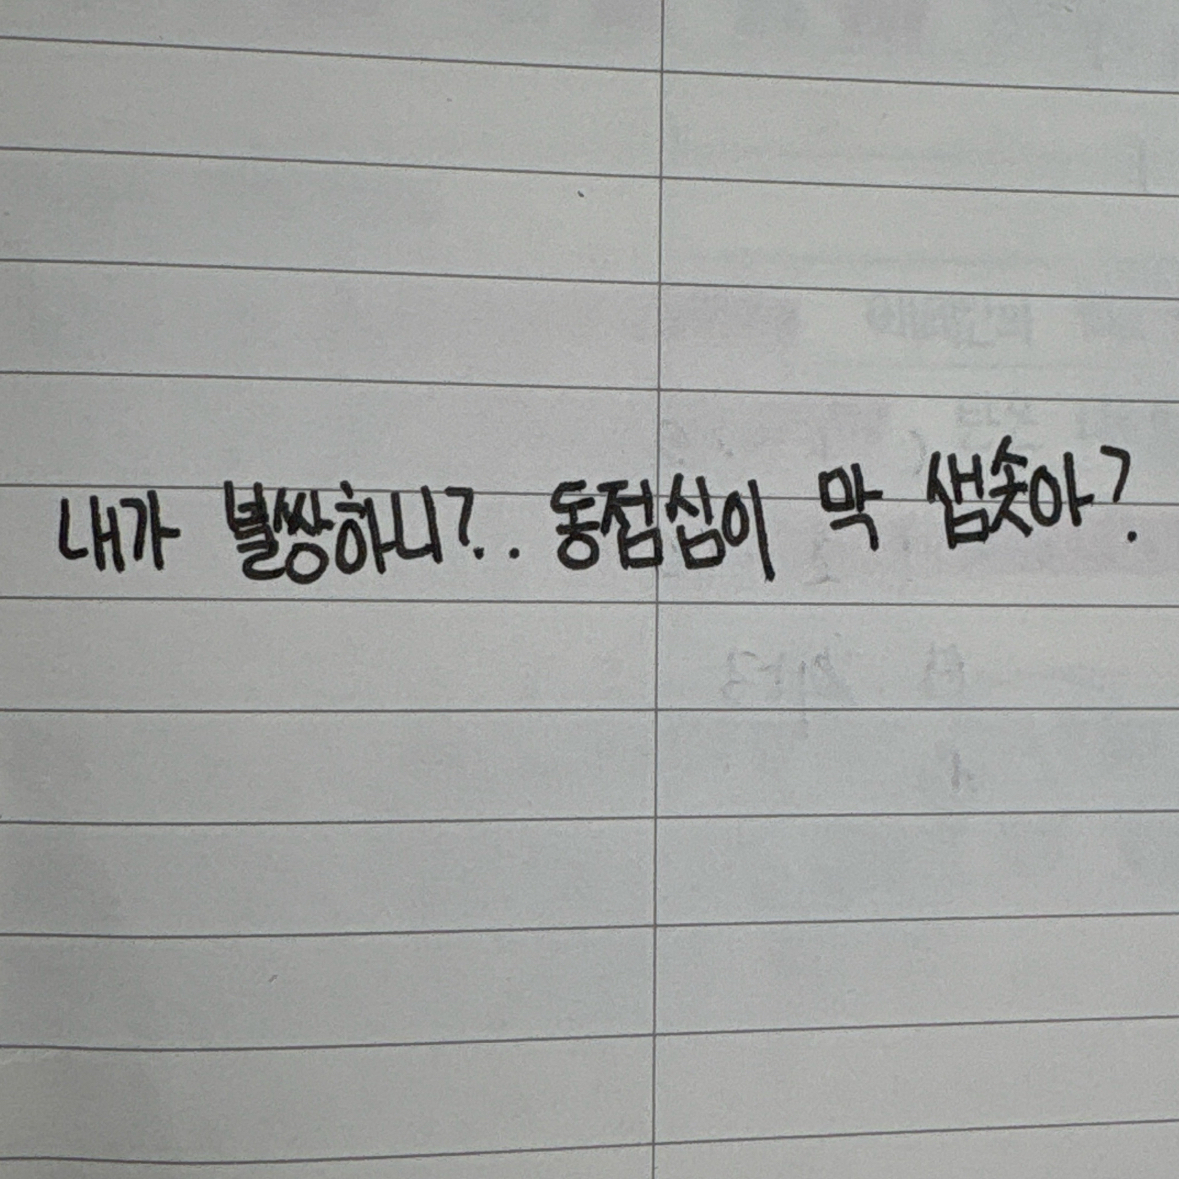 내가 불쌍하니?.. 동점심이 막 샘솟아?